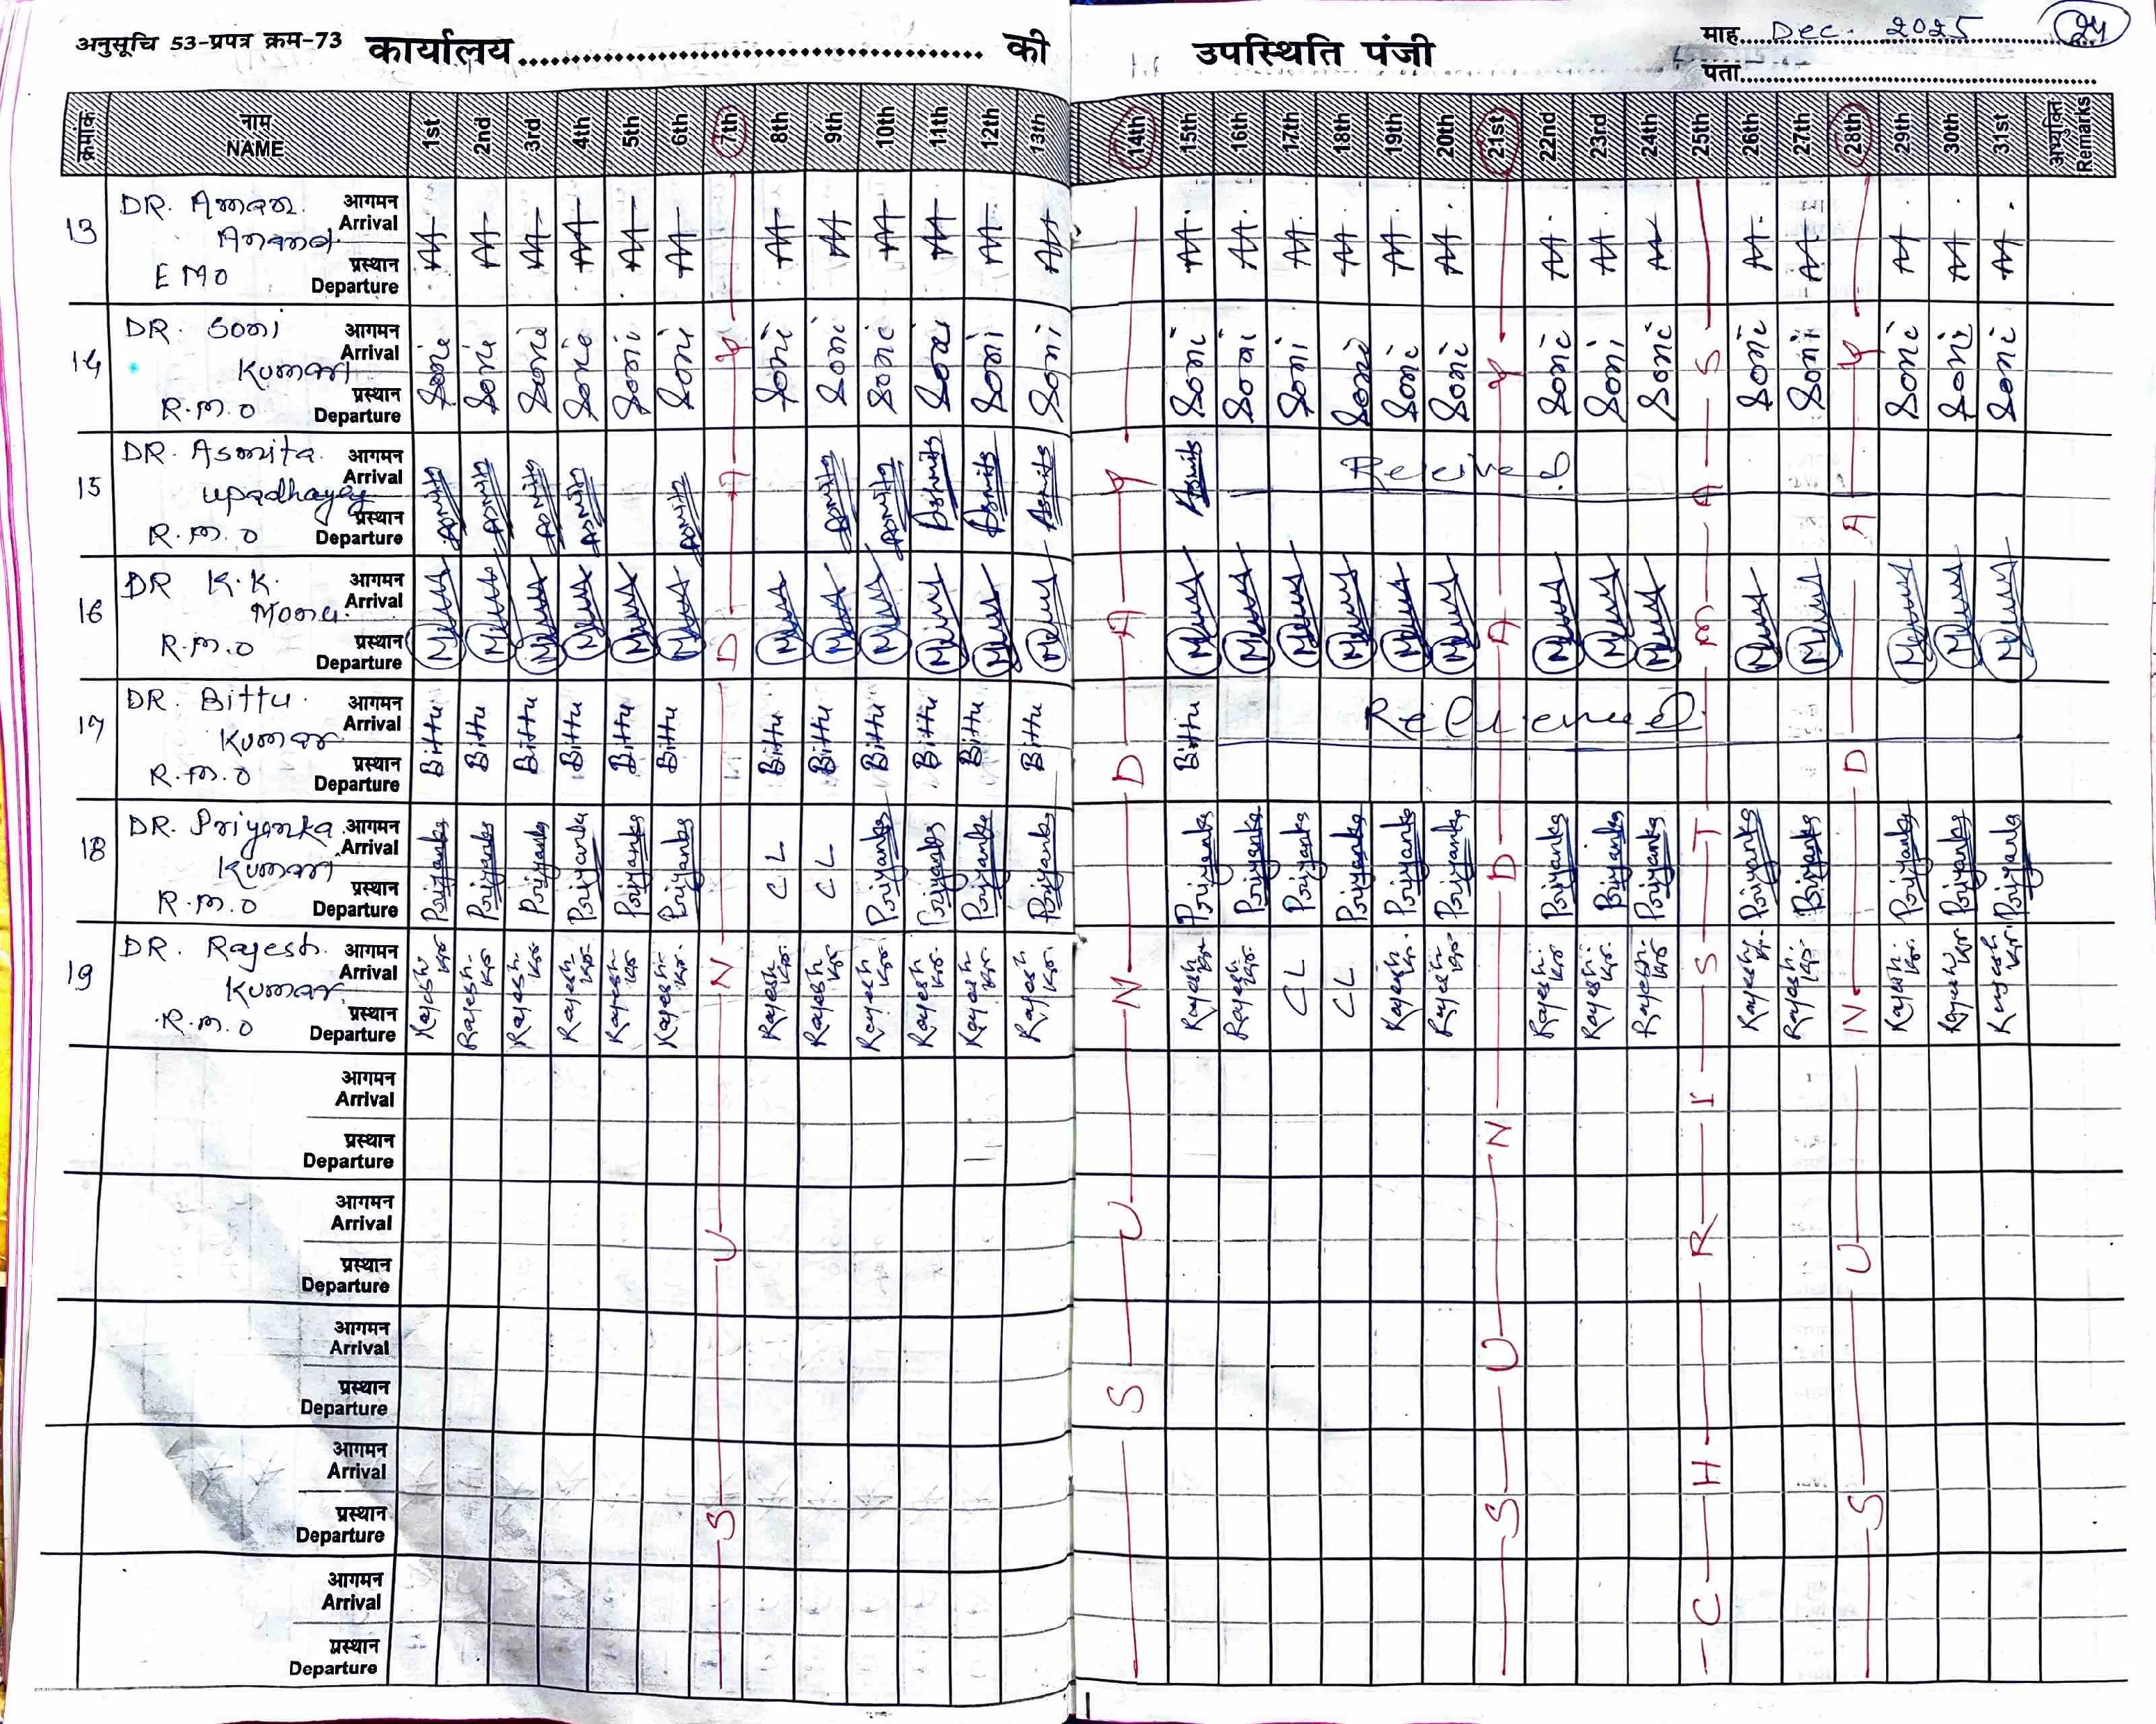 अनुसूचि 53-प्रपत्र क्रम-73 कार्यालय.......................................... की उपस्थिति पंजी
माह.... Dec. 2025 24
पता....
क्रमांक नाम NAME 1st 2nd 3rd 4th 5th 6th 7th 8th 9th 10th 11th 12th 13th 14th 15th 16th 17th 18th 19th 20th 21st 22nd 23rd 24th 25th 26th 27th 28th 29th 30th 31st अभ्युक्ति Remarks
13 DR. Aman Anand EMO आगमन Arrival प्रस्थान Departure AA AA AA AA AA AA AA AA AA AA AA AA AA AA AA AA AA AA AA AA AA AA AA AA AA AA
14 DR. Soni Kumari R.M.O आगमन Arrival प्रस्थान Departure Soni Soni Soni Soni Soni Soni Soni Soni Soni Soni Soni Soni Soni Soni Soni Soni Soni Soni Soni Soni Soni Soni Soni Soni Soni Soni
15 DR. Asmita Upadhayay R.M.O आगमन Arrival प्रस्थान Departure Asmita Asmita Asmita Asmita Asmita Asmita Asmita Asmita Asmita Asmita Asmita
16 DR K.K. Monu R.M.O आगमन Arrival प्रस्थान Departure
17 DR. Bittu Kumar R.M.O आगमन Arrival प्रस्थान Departure Bittu Bittu Bittu Bittu Bittu Bittu Bittu Bittu Bittu Bittu Bittu Bittu Bittu
18 DR. Priyanka Kumari R.M.O आगमन Arrival प्रस्थान Departure Priyanka Priyanka Priyanka Priyanka Priyanka Priyanka CL CL Priyanka Priyanka Priyanka Priyanka Priyanka Priyanka Priyanka Priyanka Priyanka Priyanka Priyanka Priyanka Priyanka Priyanka Priyanka Priyanka Priyanka Priyanka
19 DR. Rajesh Kumar R.M.O आगमन Arrival प्रस्थान Departure Rajesh Kr. Rajesh Kr. Rajesh Kr. Rajesh Kr. Rajesh Kr. Rajesh Kr. Rajesh Kr. Rajesh Kr. Rajesh Kr. Rajesh Kr. Rajesh Kr. Rajesh Kr. Rajesh Kr. Rajesh Kr. CL CL Rajesh Kr. Rajesh Kr. Rajesh Kr. Rajesh Kr. Rajesh Kr. Rajesh Kr. Rajesh Kr. Rajesh Kr. Rajesh Kr. Rajesh Kr.
आगमन Arrival
प्रस्थान Departure
आगमन Arrival
प्रस्थान Departure
आगमन Arrival
प्रस्थान Departure
आगमन Arrival
प्रस्थान Departure
आगमन Arrival
प्रस्थान Departure
SUNDAY
SUNDAY
SUNDAY
CHRISTMAS
SUNDAY